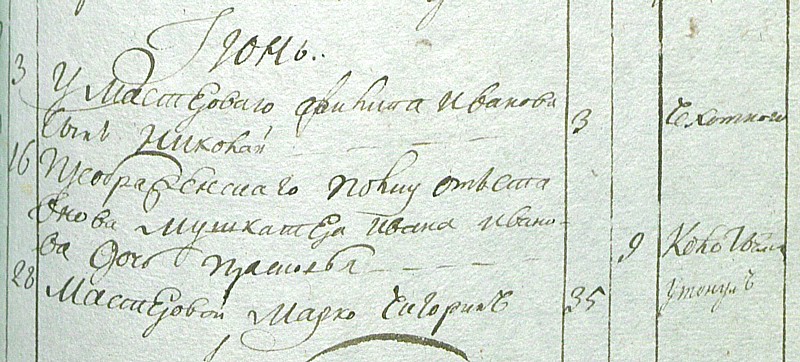 Іюнь.
3 У мастероваго Филипа Иванова 3 чехотного
сынъ Николай
16 Преображенскаго полку отъста
внова мушкатера Ивана Ивано-
ва дочь Прасковья 9
28 Мастеровой Марко Чигоринъ 35 утонулъ